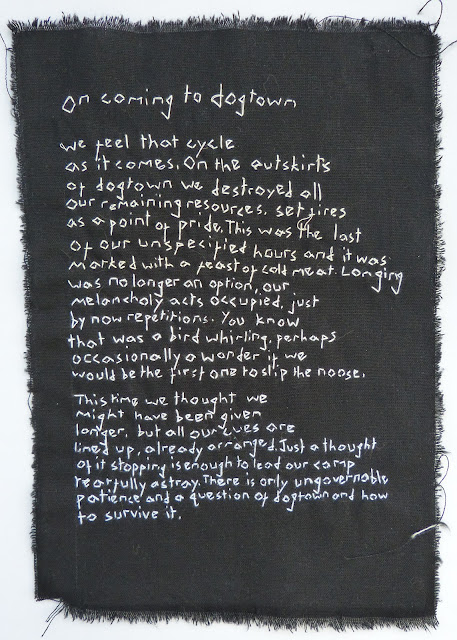 on coming to dogtown
we feel that cycle
as it comes. On the outskirts
of dogtown we destroyed all
our remaining resources. set fires
as a point of pride. This was the last
of our unspecified hours and it was
marked with a feast of cold meat. Longing
was no longer an option, our
melancholy acts occupied, just
by now repetitions. You know
that was a bird whirling, perhaps
occasionally a wonder if we
would be the first one to slip the noose.
This time we thought we
might have been given
longer, but all our cues are
lined up, already arranged. Just a thought
of it stopping is enough to lead our camp
fearfully astray. There is only ungovernable
patience and a question of dogtown and how
to survive it.